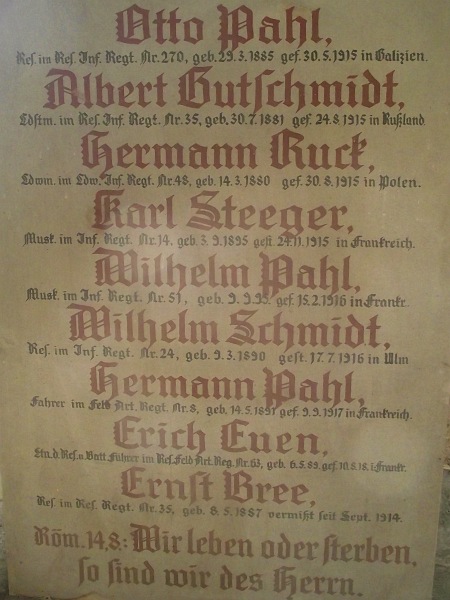 Otto Pahl,
Res. im Res. Inf. Regt. Nr. 270, geb. 29. 3. 1885 gef. 30. 5. 1915 in Galizien.
Albert Gutschmidt,
Ldstm. im Res. Inf. Regt. Nr. 35, geb. 30. 7. 1881 gef. 24. 8. 1915 in Rußland.
Hermann Ruck,
Ldwm. im Ldw. Inf. Regt. Nr. 48, geb. 14. 3. 1880 gef. 30. 8. 1915 in Polen.
Karl Steeger,
Musk. im Inf. Regt. Nr. 14, geb. 3. 9. 1895 gest. 24. 11. 1915 in Frankreich.
Wilhelm Pahl,
Musk. im Inf. Regt. Nr. 51, geb. 9. 9. 95. gef. 15. 2. 1916 in Frankr.
Wilhelm Schmidt,
Res. im Inf. Regt. Nr. 24, geb. 9. 3. 1890 gest. 17. 7. 1916 in Ulm
Hermann Pahl,
Fahrer im Feld Art. Regt. Nr. 8, geb. 14. 5. 1891 gef. 9. 9. 1917 in Frankreich.
Erich Euen,
Ltn. d. Res. u. Batt. Führer im Res. Feld Art. Reg. Nr. 63, geb. 6. 5. 89. gef. 10. 8. 18. i. Frankr.
Ernst Bree,
Res. im Res. Regt. Nr. 35, geb. 8. 5. 1887 vermißt seit Sept. 1914.
Röm. 14,8: Wir leben oder sterben,
so sind wir des Herrn.